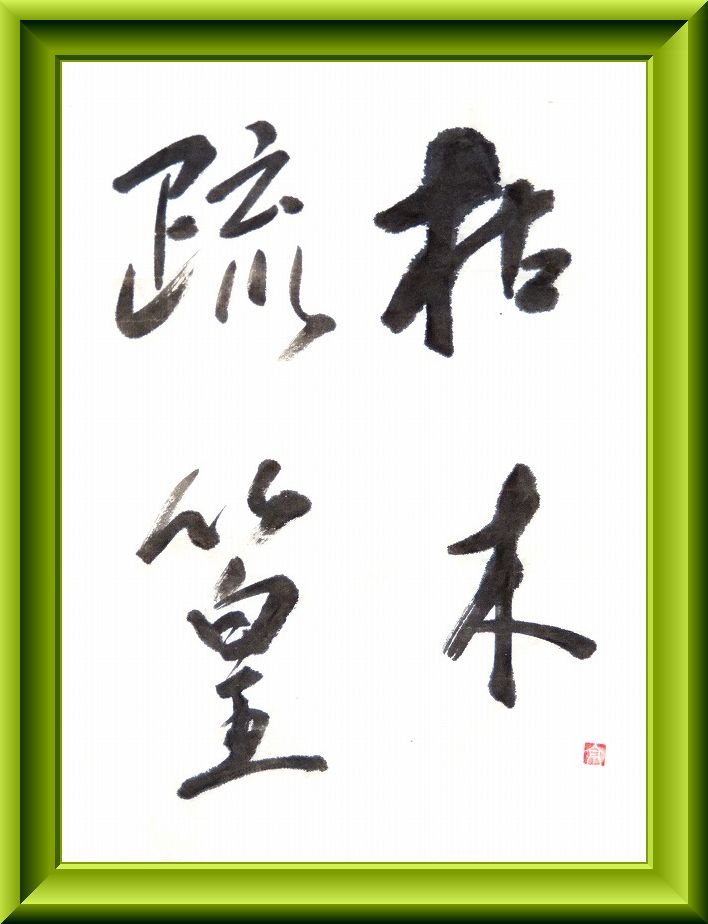 枯木
疏篁